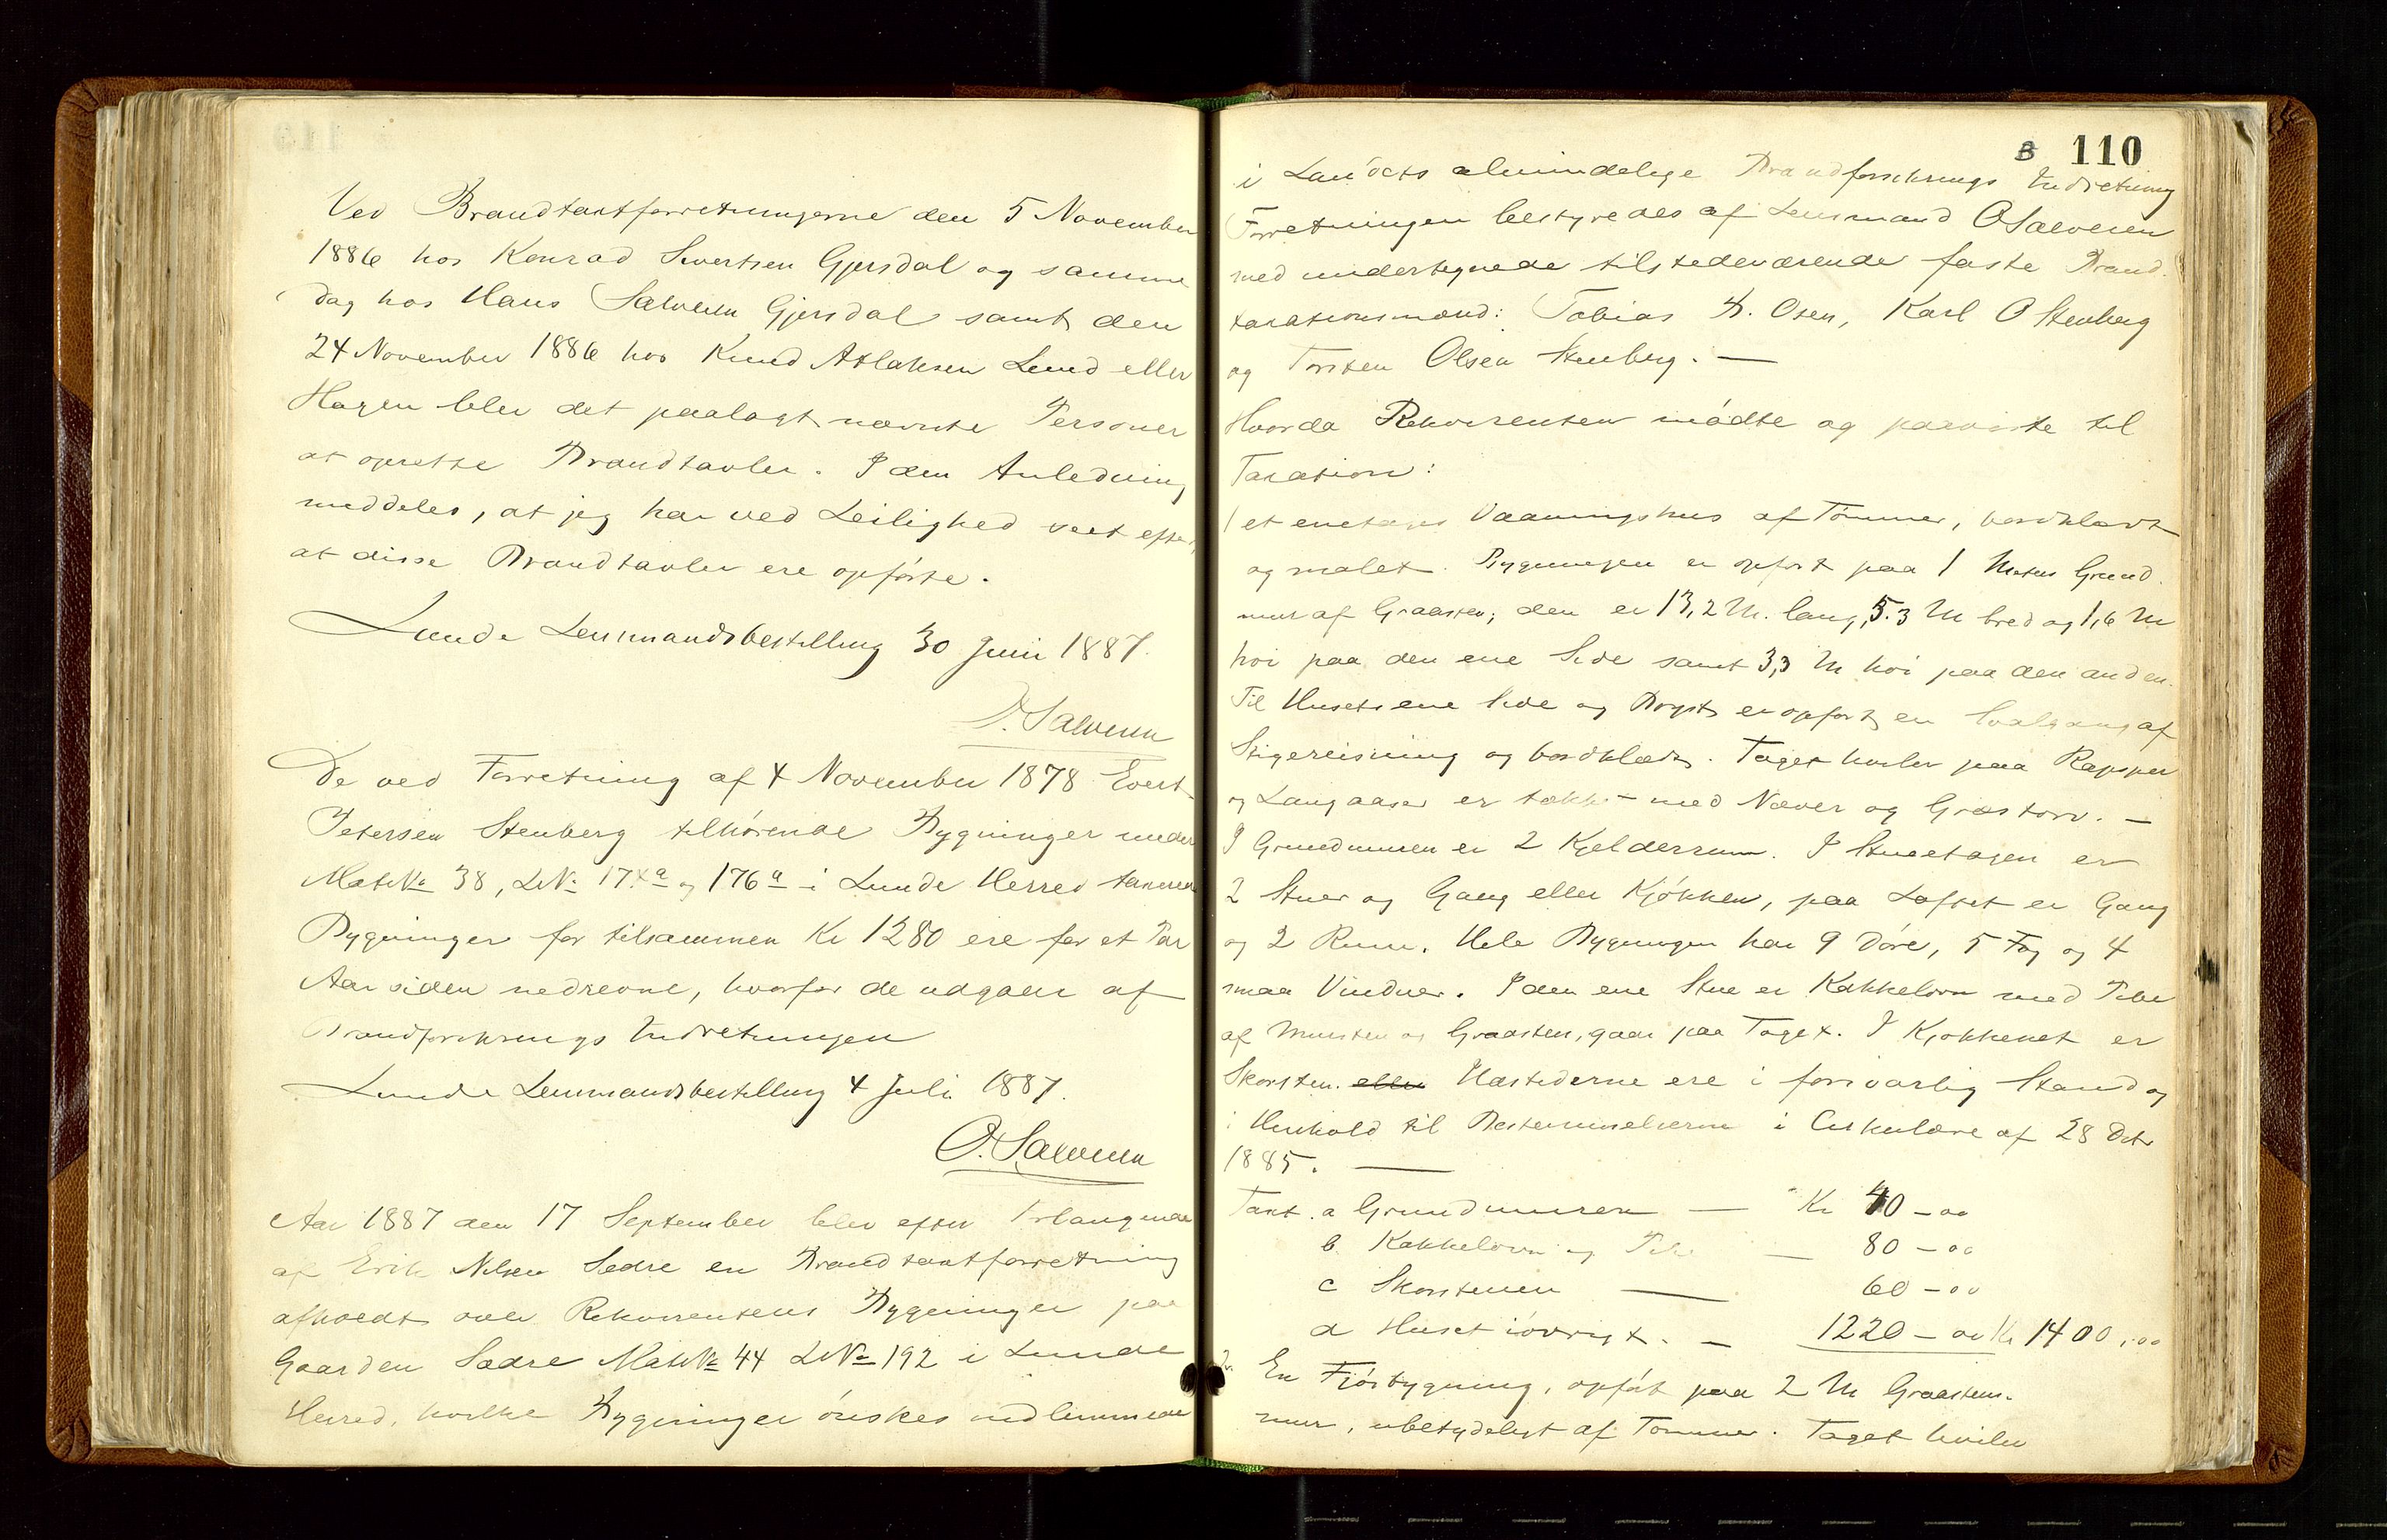 Ved Brandtaxtforretningerne den 5 November
1886 hos Konrad Sivertsen Gjersdal og samme
dag hos Hans Salvesen Gjersdal samt den
24 November 1886 hos Knud Atlaksen Lund eller
Hagen blev det paalagt nævnte Personer
at oprette Brandtavler. I den Anledning
meddeles, at jeg har ved Leilighed seet efter,
at disse Brandtavler ere opførte.
Lunde Lensmandsbestilling 30 Juni 1887.
O. Salvesen
De ved Forretning af 4 November 1878 Evert
Petersen Stenberg tilhørende Bygninger under
Mat№ 38, L№ 174a og 176a i Lunde Herred taxerede
Bygninger for tilsammen Kr 1280 ere for et Par
Aar siden nedrevne, hvorfor de udgaar af
Brandforsikrings Indretningen
Lunde Lensmandsbestilling 4 Juli 1887.
O. Salvesen
Aar 1887 den 17 September blev efter Forlangende
af Erik Nilsen Sædre en Brandtaxtforretning
afholdt over Rekvirentens Bygninger paa
Gaarden Sædre Mat№ 44 L№ 192 i Lunde
Herred, hvilke Bygninger ønskes indlemmede
B 110
i Landets almindelige Brandforsikrings Indretning
Forretningen bestyredes af Lensmand O Salvesen
med undertegnede tilstedeværende faste Brand-
taxationsmænd: Tobias T. Osen, Karl O Stenberg
og Torsten Olsen Stenberg. —
Hvorda Rekvirenten mødte og paaviste til
Taxation:
1 et enetages Vaaningshus af Tømmer, bordklædt
og malet. Bygningen er opført paa 1 Meters Grund-
mur af Graasten; den er 13,2 M. lang, 5.3 M bred og 1,6 M
høi paa den ene Side samt 3,3 M høi paa den anden.
Til Husets ene Side og Bryst er opført en Svalgang af
Stigereisning og bordklædt. Taget hviler paa Rapper
og Langaaser er tækket med Næver og Græstorv. —
I Grundmuren er 2 Kjelderrum. I Stueetagen er
2 Stuer og Gang eller Kjøkken, paa Loftet er Gang
og 2 Rum. Hele Bygningen har 9 Døre, 5 Fag og 4
smaa Vinduer. I den ene Stue er Kakkelovn med Pibe
af Mursten og Graasten, gaar paa Taget. I Kjøkkenet er
Skorsten. eller Ildstederne ere i forsvarlig Stand og
i Henhold til Bestemmelserne i Cirkulære af 28 Dcbr
1885. —
Taxt. a Grundmuren — Kr 40 – 00
b Kakkelovn og Pibe — 80 – 00
c Skorstenen — 60 – 00
d Huset iøvrigt. — 1220 – 00 Kr 1400,00
2. En Fjøsbygning, opført paa 2 M Graastens-
mur, ubetydeligt af Tømmer. Taget hviler